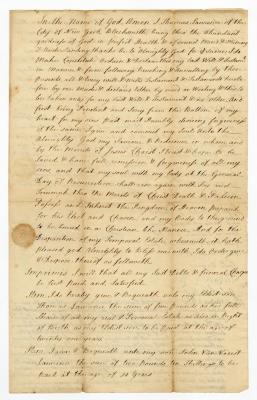 In the Name of God Amen I Thomas Lawrence of the
City of New York Blacksmith being thro the abundant
goodness of God in perfect Health & of sound Mind & Memory
& Understanding thanks be to Almighty God for it I do
Make Constitute Ordain & Declare this my last Will & Testament
in Manner & form following revoking & annulling by these
Presents all & every will & wills Testament & Testaments heretofore
by me Made & declared either by word or Writing & this to
be taken only for my last Will & Testament & no other, And
first being Penitent and Sorry from the Bottom of my
heart for my sins past most humbly desiring forgiveness
of the same I give and commit my Soul unto
Almighty God my Saviour & Redeemer in whom and
by the Merits of Jesus Christ I trust & hope to be
Saved & have full remission & forgiveness of all my
sins and that my soul with my body at the General
Day of Resurrection shall rise again with Joy and
through the Merits of Christ Death & Passion
Possess and Inherit the Kingdom of Heaven prepared
for his Elect and Chosen and my Body to the ground
to be buried in a Christian like Manner And for the
Disposition of my Temporal Estate wherewith it hath
pleased God Almighty to bless me with I do order give
& Dispose thereof as followeth
Imprimis I will that all my Just Debts & funeral Charges
be first Paid and Satisfied.
Item I do hereby give & Bequeath unto my Eldest son
Thomas Lawrence the sum of five pounds as his full
Share of all my real & Personal Estate as also in Right
of Birth as my Eldest son to be paid at the age of
twenty one years
Item I give & Bequeath unto my son John Van Varick
Lawrence the sum of two Pounds ten Shillings to be
paid at the age of 21 years